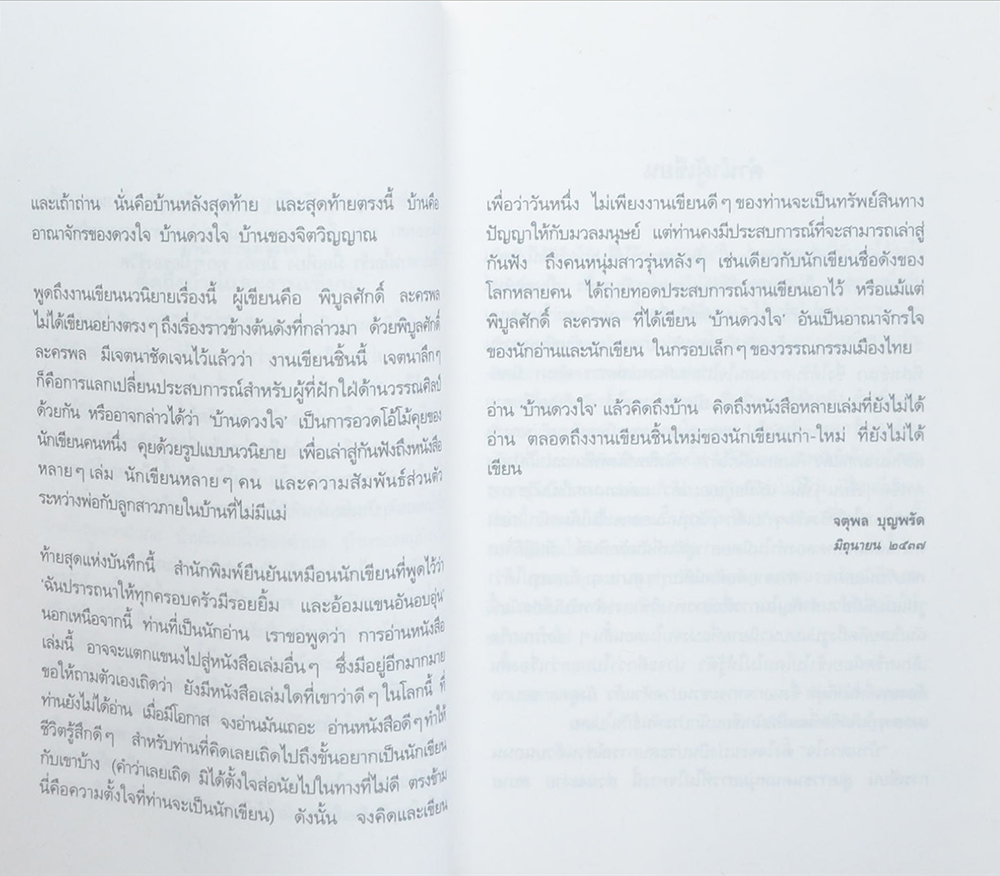 และเถ้าถ่าน นั่นคือบ้านหลังสุดท้าย และสุดท้ายตรงนี้ บ้านคือ
อาณาจักรของดวงใจ บ้านดวงใจ บ้านของจิตวิญญาณ
พูดถึงงานเขียนนวนิยายเรื่องนี้ ผู้เขียนคือ พิบูลศักดิ์ ละครพล
ไม่ได้เขียนอย่างตรงๆ ถึงเรื่องราวข้างต้นดังที่กล่าวมา ด้วยพิบูลศักดิ์
ละครพล มีเจตนาชัดเจนไว้แล้วว่า งานเขียนชิ้นนี้ เจตนาลึกๆ
ก็คือการแลกเปลี่ยนประสบการณ์สำหรับผู้ที่ฝักใฝ่ด้านวรรณศิลป์
ด้วยกัน หรืออาจกล่าวได้ว่า ‘บ้านดวงใจ’ เป็นการอวดโอ้โม้คุยของ
นักเขียนคนหนึ่ง คุยด้วยรูปแบบนวนิยาย เพื่อเล่าสู่กันฟังถึงหนังสือ
หลายๆ เล่ม นักเขียนหลายๆ คน และความสัมพันธ์ส่วนตัว
ระหว่างพ่อกับลูกสาวภายในบ้านที่ไม่มีแม่
ท้ายสุดแห่งบันทึกนี้ สำนักพิมพ์ยืนยันเหมือนนักเขียนที่พูดไว้ว่า
‘ฉันปรารถนาให้ทุกครอบครัวมีรอยยิ้ม และอ้อมแขนอันอบอุ่น’
นอกเหนือจากนี้ ท่านที่เป็นนักอ่าน เราขอพูดว่า การอ่านหนังสือ
เล่มนี้ อาจจะแตกแขนงไปสู่หนังสือเล่มอื่นๆ ซึ่งมีอยู่อีกมากมาย
ขอให้ถามตัวเองเถิดว่า ยังมีหนังสือเล่มใดที่เขาว่าดีๆ ในโลกนี้ ที่
ท่านยังไม่ได้อ่าน เมื่อมีโอกาส จงอ่านมันเถอะ อ่านหนังสือดีๆ ทำให้
ชีวิตรู้สึกดีๆ สำหรับท่านที่คิดเลยเถิดไปถึงขั้นอยากเป็นนักเขียน
กับเขาบ้าง (คำว่าเลยเถิด มิได้ตั้งใจส่อนัยไปในทางที่ไม่ดี ตรงข้าม
นี่คือความตั้งใจที่ท่านจะเป็นนักเขียน) ดังนั้น จงคิดและเขียน
เพื่อว่าวันหนึ่ง ไม่เพียงงานเขียนดีๆ ของท่านจะเป็นทรัพย์สินทาง
ปัญญาให้กับมวลมนุษย์ แต่ท่านคงมีประสบการณ์ที่จะสามารถเล่าสู่
กันฟัง ถึงคนหนุ่มสาวรุ่นหลังๆ เช่นเดียวกับนักเขียนชื่อดังของ
โลกหลายคน ได้ถ่ายทอดประสบการณ์งานเขียนเอาไว้ หรือแม้แต่
พิบูลศักดิ์ ละครพล ที่ได้เขียน ‘บ้านดวงใจ’ อันเป็นอาณาจักรใจ
ของนักอ่านและนักเขียน ในกรอบเล็กๆ ของวรรณกรรมเมืองไทย
อ่าน ‘บ้านดวงใจ’ แล้วคิดถึงบ้าน คิดถึงหนังสือหลายเล่มที่ยังไม่ได้
อ่าน ตลอดถึงงานเขียนชิ้นใหม่ของนักเขียนเก่า-ใหม่ ที่ยังไม่ได้
เขียน
จตุพล บุญพรัด
มิถุนายน ๒๕๓๗